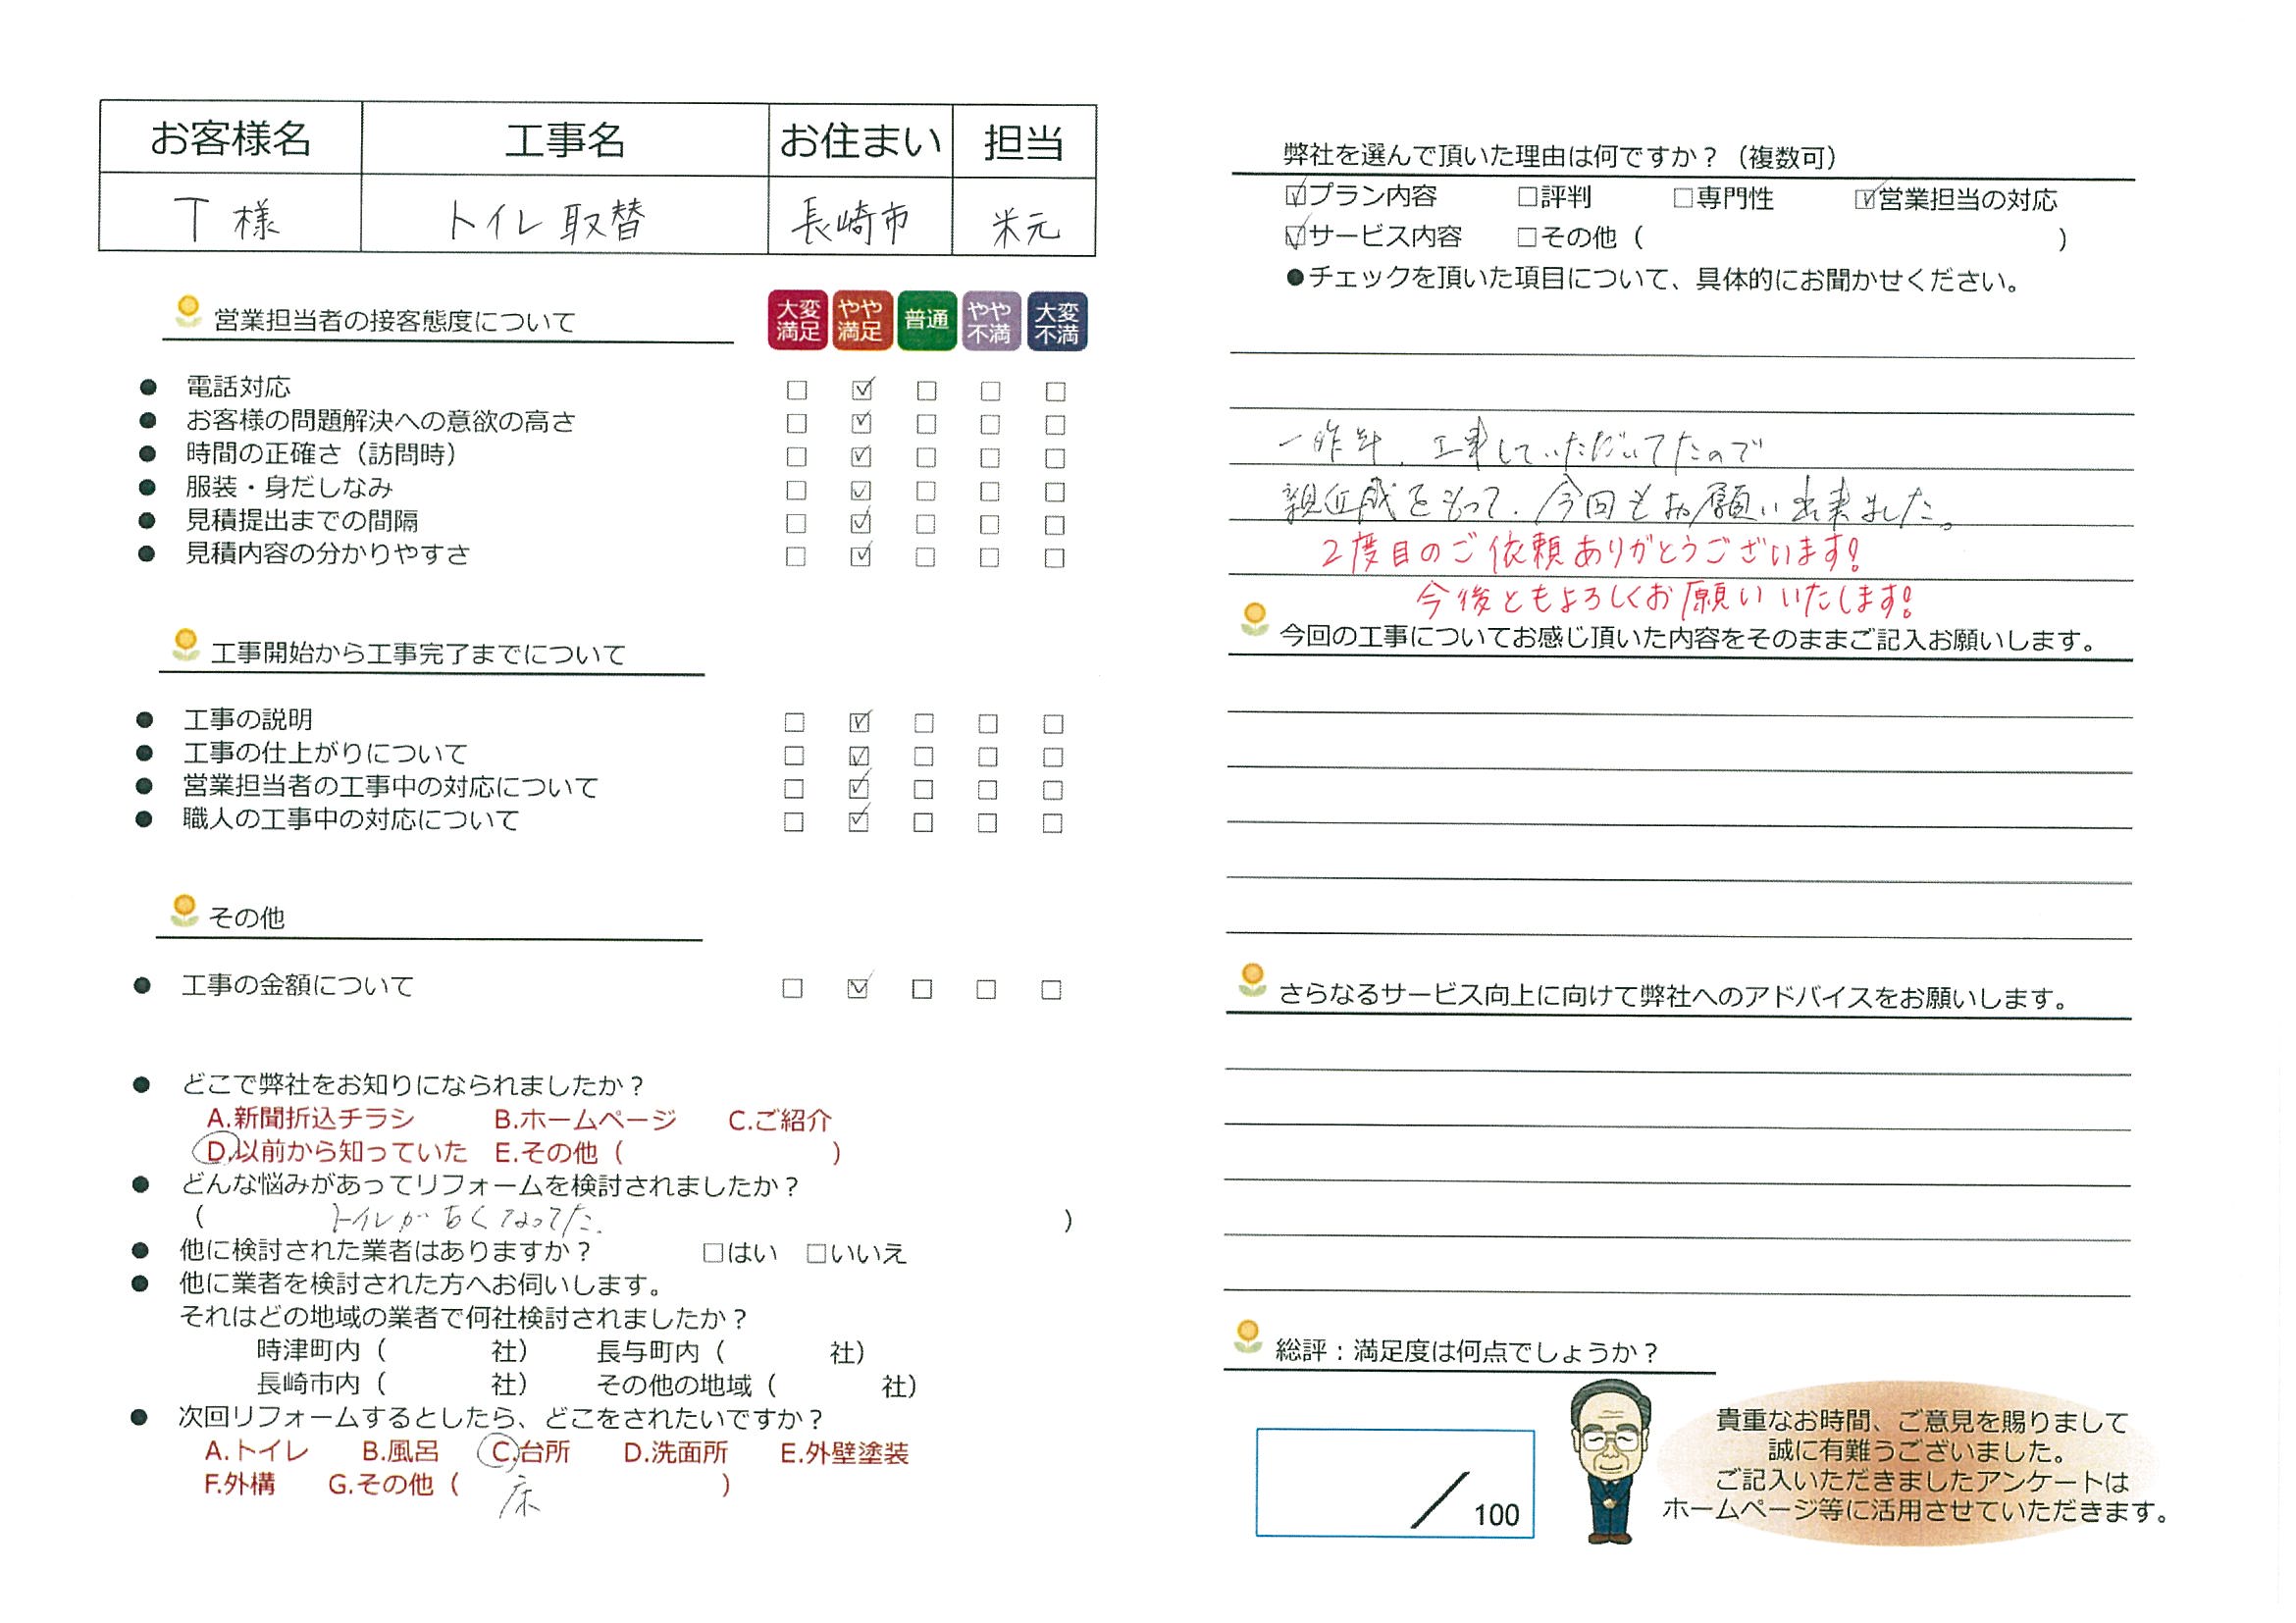 お客様名 工事名 お住まい 担当
T 様 トイレ取替 長崎市 米元
営業担当者の接客態度について
大変満足 やや満足 普通 やや不満 大変不満
● 電話対応 □ ☑ □ □ □
● お客様の問題解決への意欲の高さ □ ☑ □ □ □
● 時間の正確さ（訪問時） □ ☑ □ □ □
● 服装・身だしなみ □ ☑ □ □ □
● 見積提出までの間隔 □ ☑ □ □ □
● 見積内容の分かりやすさ □ ☑ □ □ □
工事開始から工事完了までについて
● 工事の説明 □ ☑ □ □ □
● 工事の仕上がりについて □ ☑ □ □ □
● 営業担当者の工事中の対応について □ ☑ □ □ □
● 職人の工事中の対応について □ ☑ □ □ □
その他
● 工事の金額について □ ☑ □ □ □
● どこで弊社をお知りになられましたか？
A.新聞折込チラシ B.ホームページ C.ご紹介
D.以前から知っていた E.その他（ ）
● どんな悩みがあってリフォームを検討されましたか？
（ トイレが古くなってた. ）
● 他に検討された業者はありますか？ □はい □いいえ
● 他に業者を検討された方へお伺いします。
それはどの地域の業者で何社検討されましたか？
時津町内（ 社） 長与町内（ 社）
長崎市内（ 社） その他の地域（ 社）
● 次回リフォームするとしたら、どこをされたいですか？
A.トイレ B.風呂 C.台所 D.洗面所 E.外壁塗装
F.外構 G.その他（ 床 ）
弊社を選んで頂いた理由は何ですか？（複数可）
☑プラン内容 □評判 □専門性 ☑営業担当の対応
☑サービス内容 □その他（ ）
●チェックを頂いた項目について、具体的にお聞かせください。
一昨年、工事していただいてたので
親近感をもって、今回もお願い出来ました。
2度目のご依頼ありがとうございます!
今後ともよろしくお願いいたします!
今回の工事についてお感じ頂いた内容をそのままご記入お願いします。
さらなるサービス向上に向けて弊社へのアドバイスをお願いします。
総評：満足度は何点でしょうか？
／100
貴重なお時間、ご意見を賜りまして
誠に有難うございました。
ご記入いただきましたアンケートは
ホームページ等に活用させていただきます。